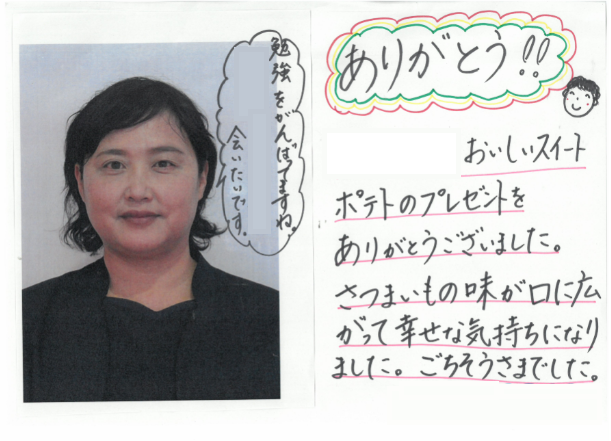 勉強をがんばってますね。
会いたいです。
ありがとう!!
おいしいスイート
ポテトのプレゼントを
ありがとうございました。
さつまいもの味が口に広
がって幸せな気持ちになり
ました。ごちそうさまでした。